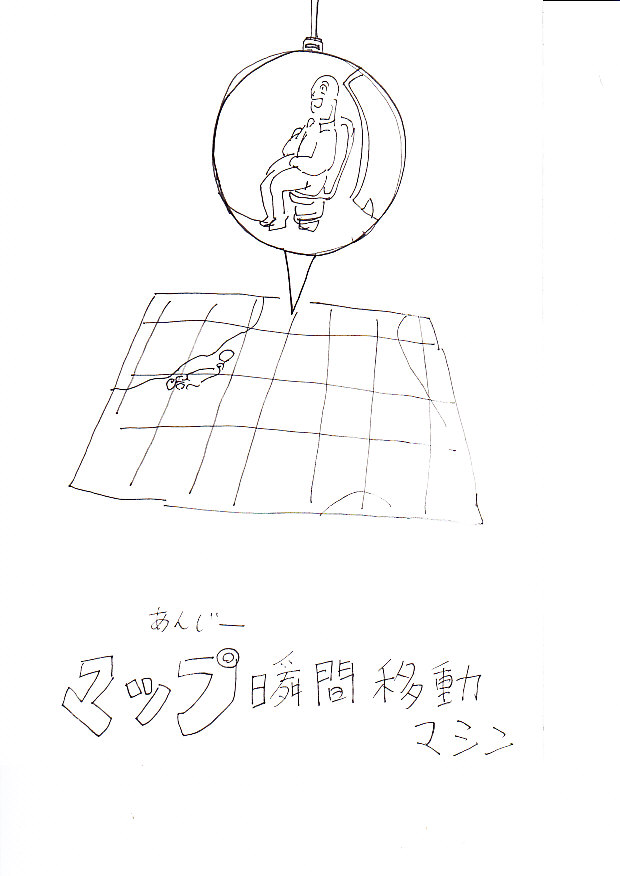 あんじー
マップ瞬間移動
マシン